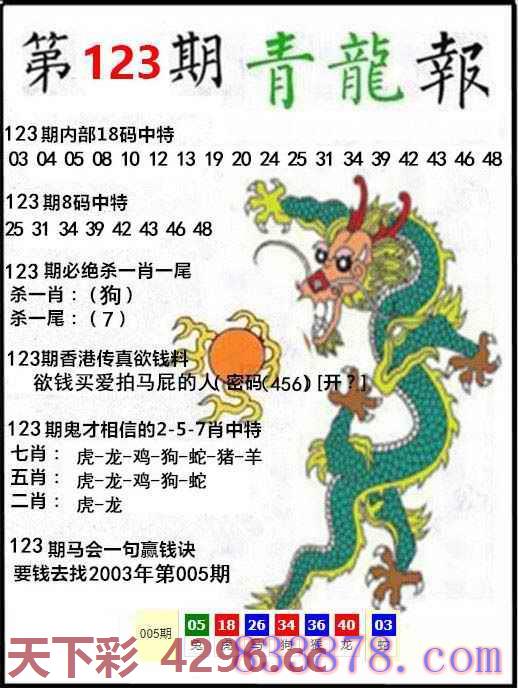 第123期青龍報
123期内部18码中特
03 04 05 08 10 12 13 19 20 24 25 31 34 39 42 43 46 48
123期8码中特
25 31 34 39 42 43 46 48
123期必绝杀一肖一尾
杀一肖：(狗)
杀一尾：(7)
123期香港传真欲钱料
欲钱买爱拍马屁的人(密码(456)[开？]
123期鬼才相信的2-5-7肖中特
七肖：虎-龙-鸡-狗-蛇-猪-羊
五肖：虎-龙-鸡-狗-蛇
二肖：虎-龙
123期马会一句赢钱诀
要钱去找2003年第005期
005期 05 18 26 34 36 40 03
兔 马 狗 猴 龙 蛇
天下彩 4296.cc
833878.com